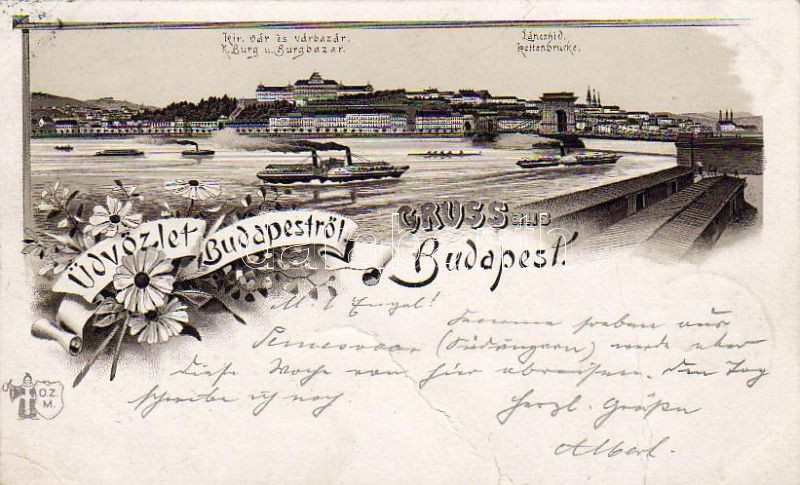 Kir. vár és várbazár.
K. Burg u. Burgbazar.
Lánczhid.
Kettenbrücke.
Üdvözlet Budapestről!
GRUSS aus
Budapest!
M. l. Engel!
Komme soeben aus
Temesvar (Südungarn) werde aber
diese Woche von hier abreisen. Den Tag
schreibe ich noch.
Herzl. Grüße
Albert.
O.Z.
M.